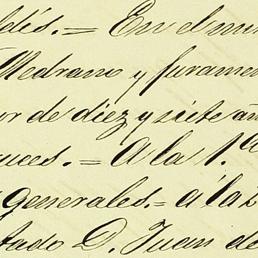 ldés.= En el mis
Medrano y juramen
or de diez y siete añ
uces.= A la 1.ª
generales.= á la 2
tado D. Juan de